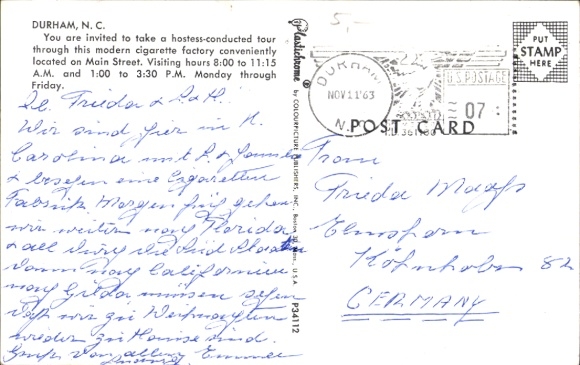 DURHAM, N. C.
You are invited to take a hostess-conducted tour
through this modern cigarette factory conveniently
located on Main Street. Visiting hours 8:00 to 11:15
A.M. and 1:00 to 3:30 P.M. Monday through
Friday.
Lb. Frieda &
Wir sind hier in N.
Carolina mit & Familie
& besehen eine Cigaretten
Fabrik Morgen früh gehen
wir weiter nach Florida
& all durch die Süd Staaten
dann nach Californien
nach Gilda müssen sehen
daß wir zu Weihnachten
wieder zu Hause sind.
Gruß von allen
Plastichrome ®
by COLOURPICTURE PUBLISHERS, INC., Boston 30, Mass. U.S.A.
P34112
5,-
DURHAM
NOV 11 '63
N.
U.S. POSTAGE
07
PUT
STAMP
HERE
POST CARD
Frau
Frieda
Elmshorn
Köhnholz 82
GERMANY